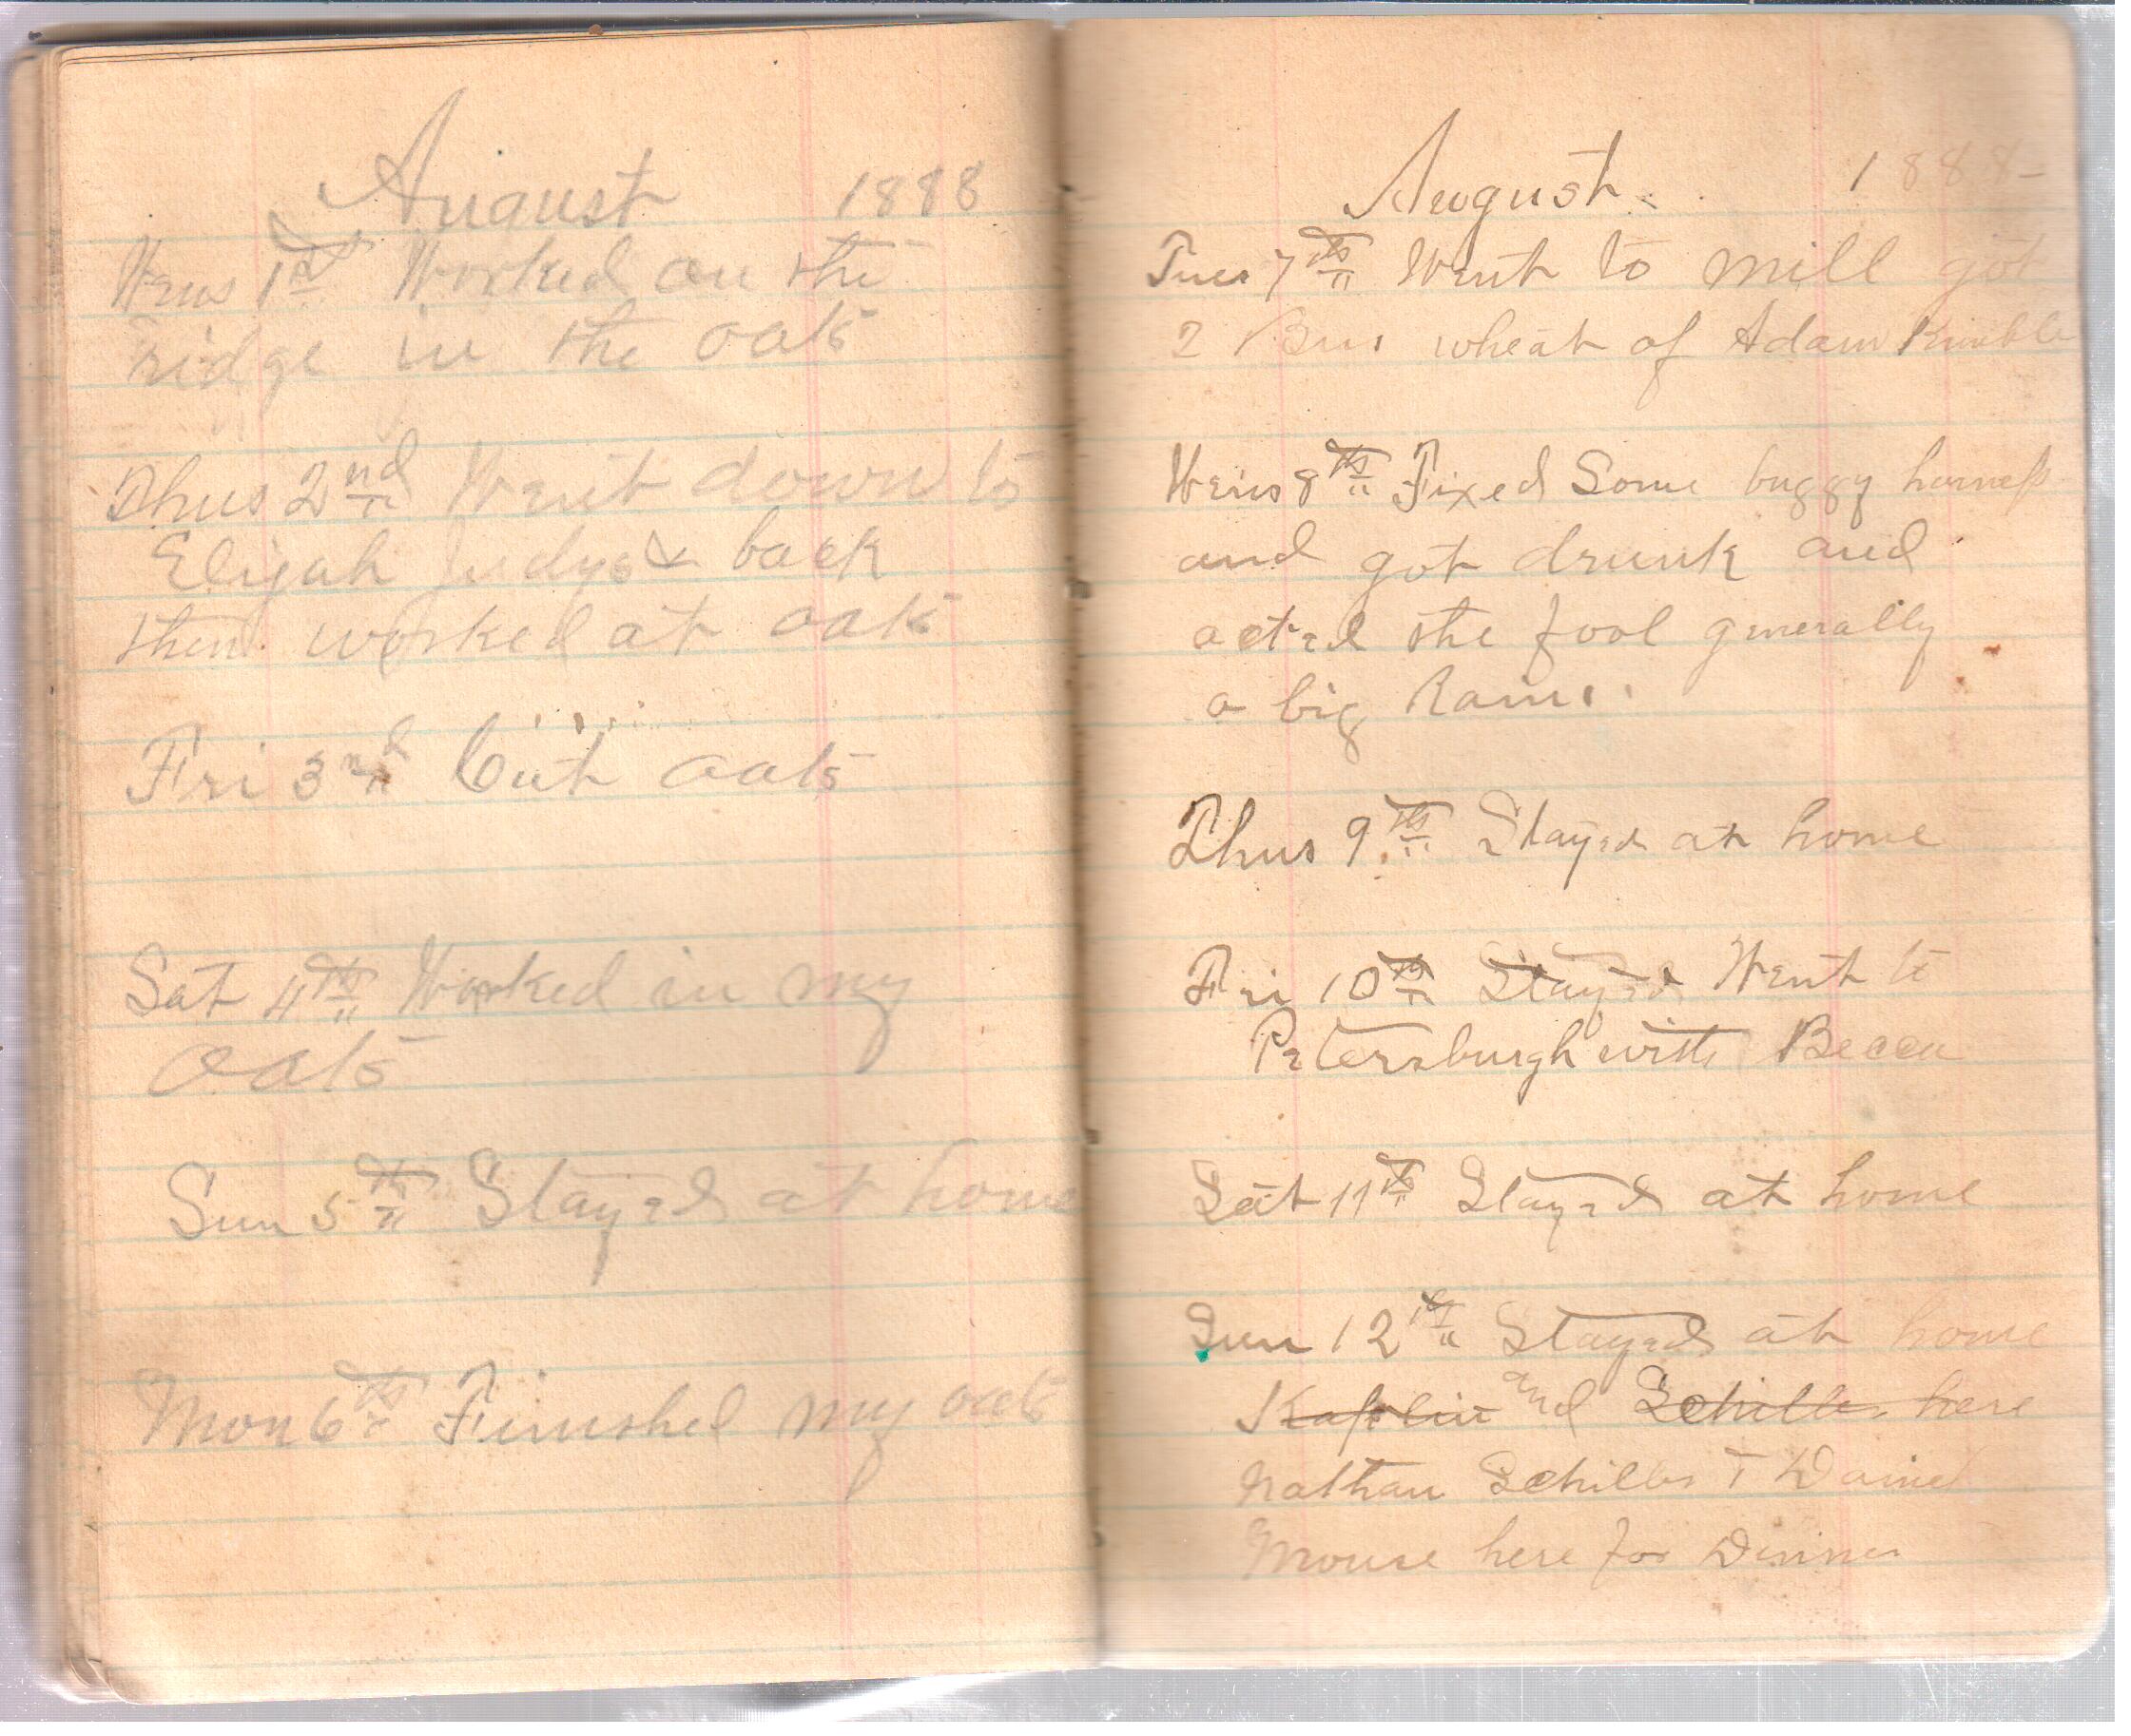 August 1888
Wens 1st Worked on the
ridge in the oats
Thus 2nd Went down to
Elijah Judys & back
then worked at oats
Fri 3nd Cut oats
Sat 4th Worked in my
oats
Sun 5th Stayed at home
Mon 6th Finished my oats
August 1888
Tues 7th Went to mill got
2 Bus wheat of Adam Kimble
Wens 8th Fixed Some buggy harness
and got drunk and
acted the fool generally
a big Rain
Thus 9th Stayed at home
Fri 10th Stayed Went to
Petersburgh with Becca
Sat 11th Stayed at home
Sun 12th Stayed at home
and here
Nathan & Daniel
Mouse here for Dinner